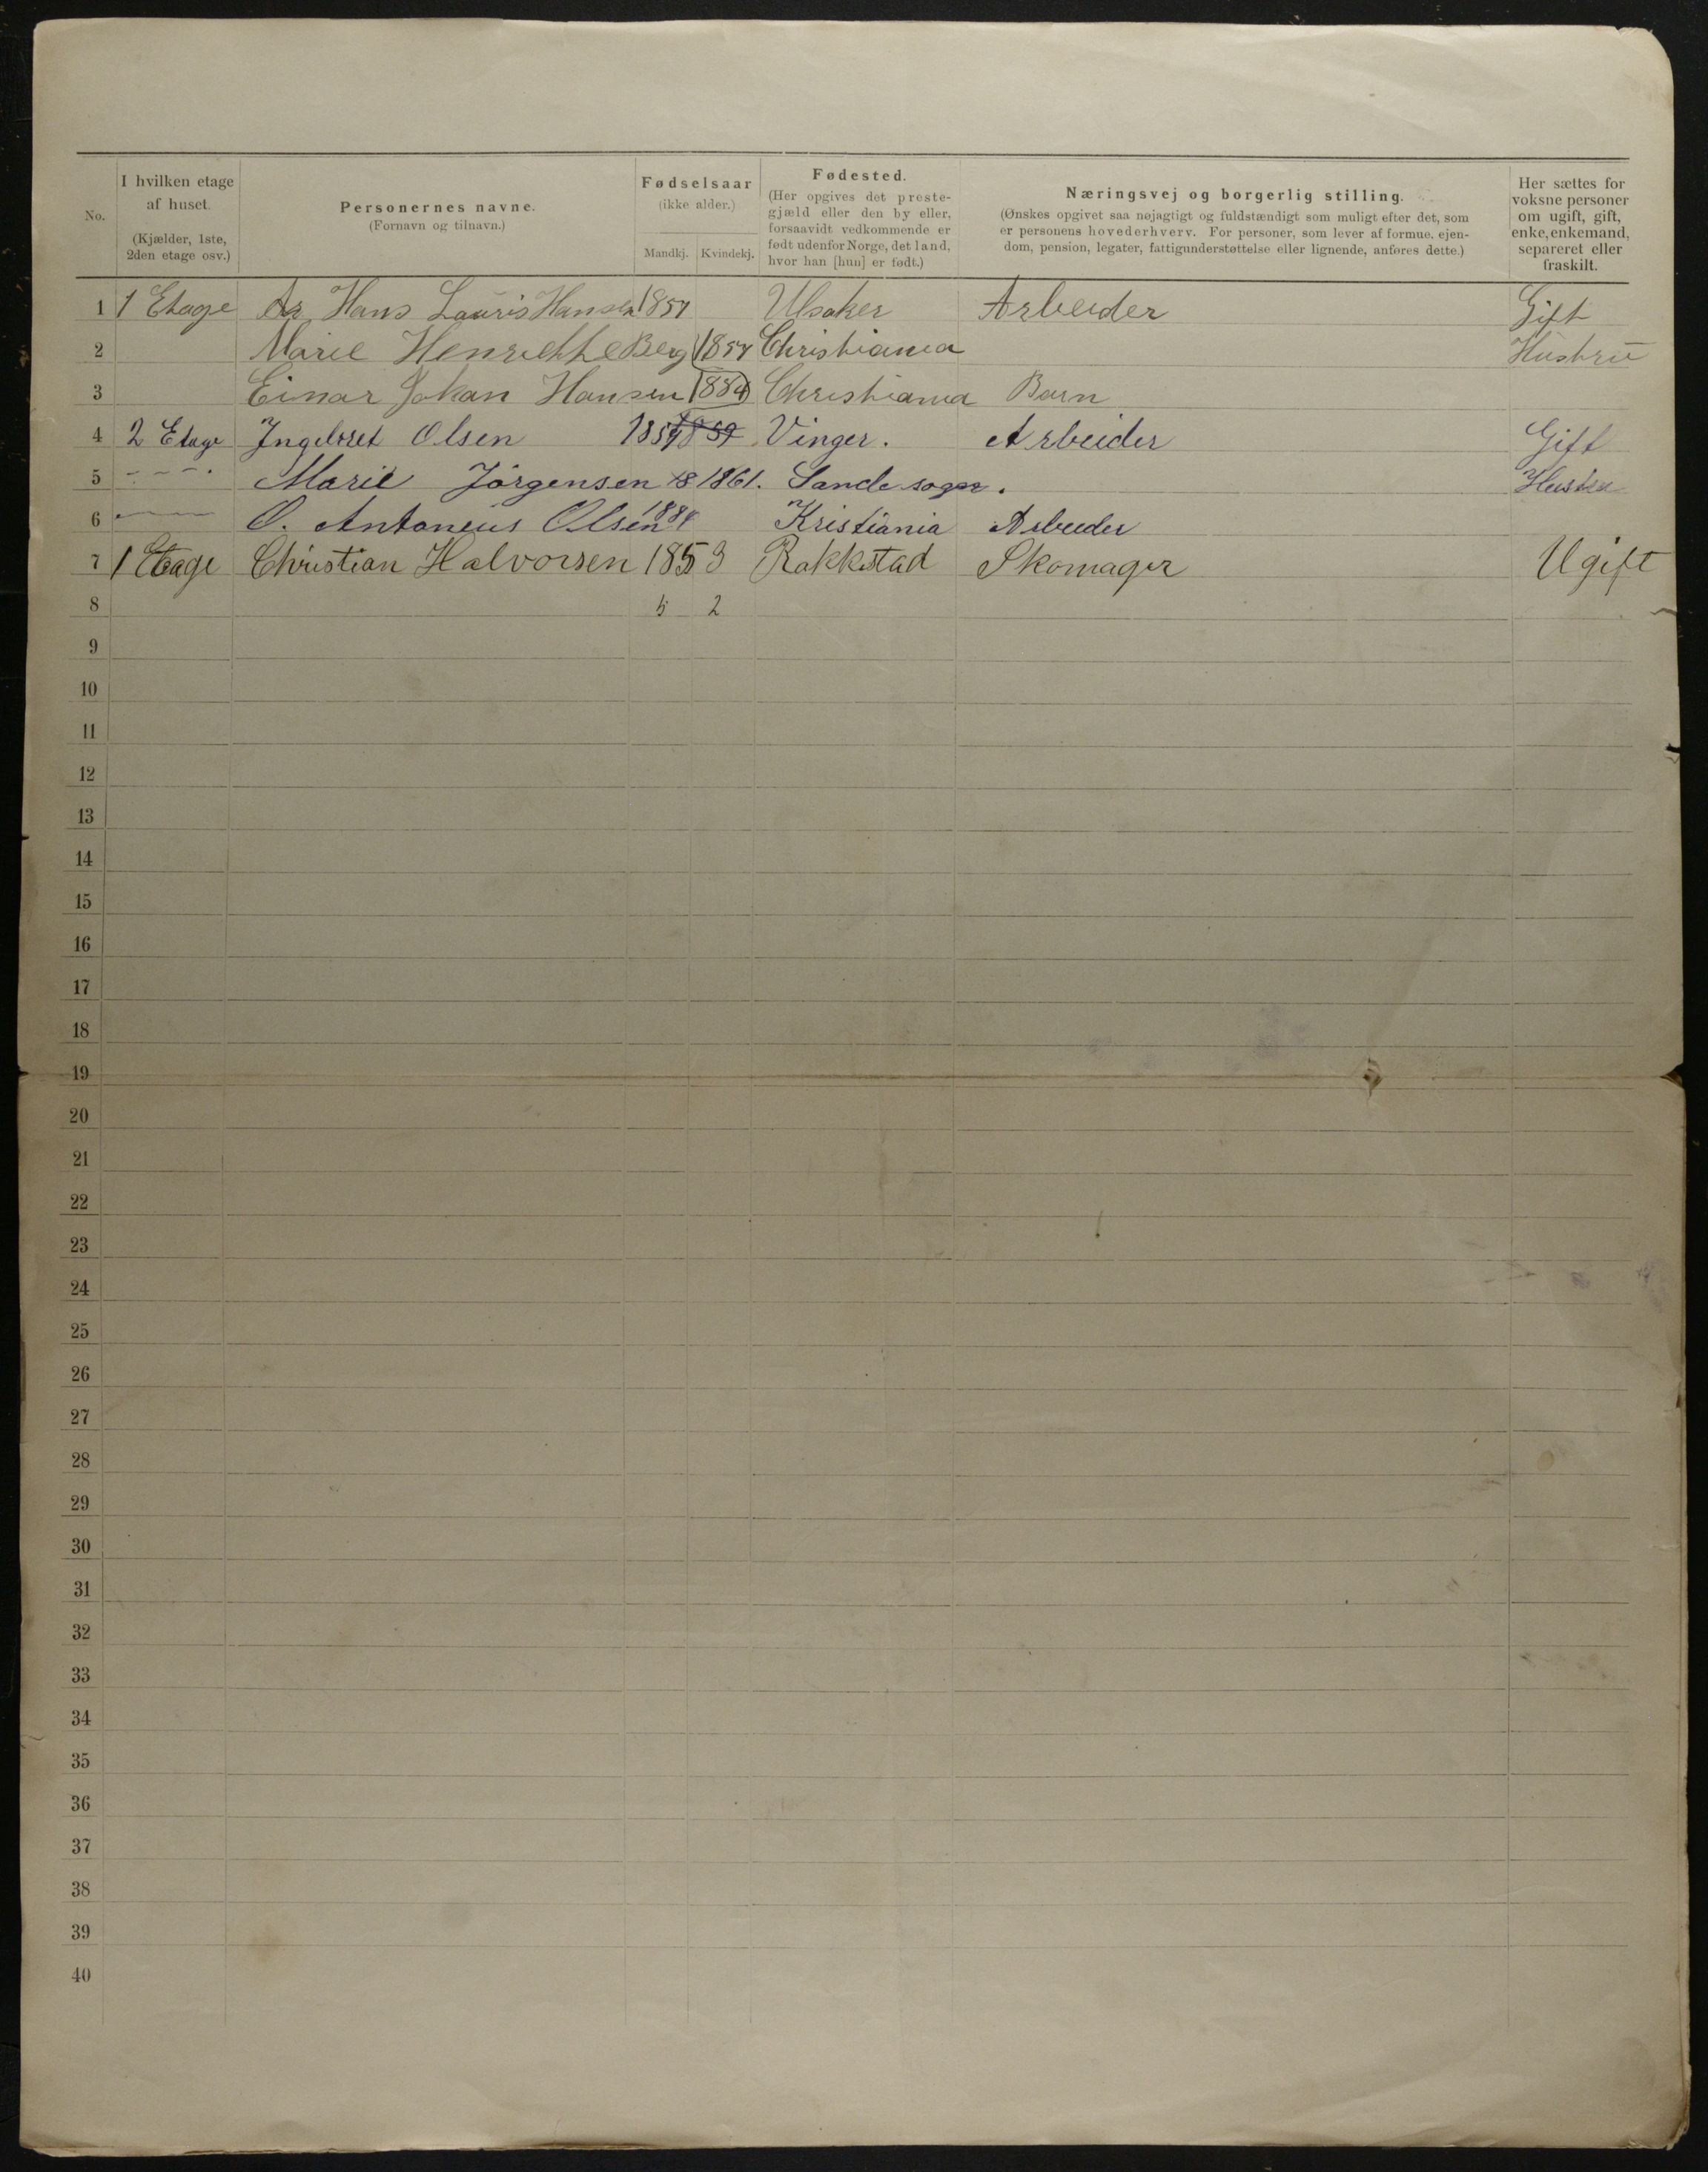 No.
I hvilken etage
af huset.
(Kjælder, 1ste,
2den etage osv.)
Personernes navne.
(Fornavn og tilnavn.)
Fødselsaar
(ikke alder.)
Mandkj. Kvindekj.
Fødested.
(Her opgives det preste-
gjæld eller den by eller,
forsaavidt vedkommende er
født udenfor Norge, det land,
hvor han [hun] er født.)
Næringsvej og borgerlig stilling.
(Ønskes opgivet saa nøjagtigt og fuldstændigt som muligt efter det, som
er personens hovederhverv. For personer, som lever af formue, ejen-
dom, pension, legater, fattigunderstøttelse eller lignende, anføres dette.)
Her sættes for
voksne personer
om ugift, gift,
enke, enkemand,
separeret eller
fraskilt.
1 1 Etage Hans Lauris Hansen 1857 Ulsaker Arbeider Gift
2 Marie Henriethe Berg 1857 Christiania Hustru
3 Einar Johan Hansen 1884 Christiania Barn
4 2 Etage Ingebret Olsen 1859 1859 Vinger. Arbeider Gift
5 Marie Jörgensen 18 1861. Sande sogn. Hustru
6 O. Antoneus Olsen 1884 Kristiania Arbeider
7 1 Etage Christian Halvorsen 1853 Rakkestad Skomager Ugift
8 5 2
9
10
11
12
13
14
15
16
17
18
19
20
21
22
23
24
25
26
27
28
29
30
31
32
33
34
35
36
37
38
39
40